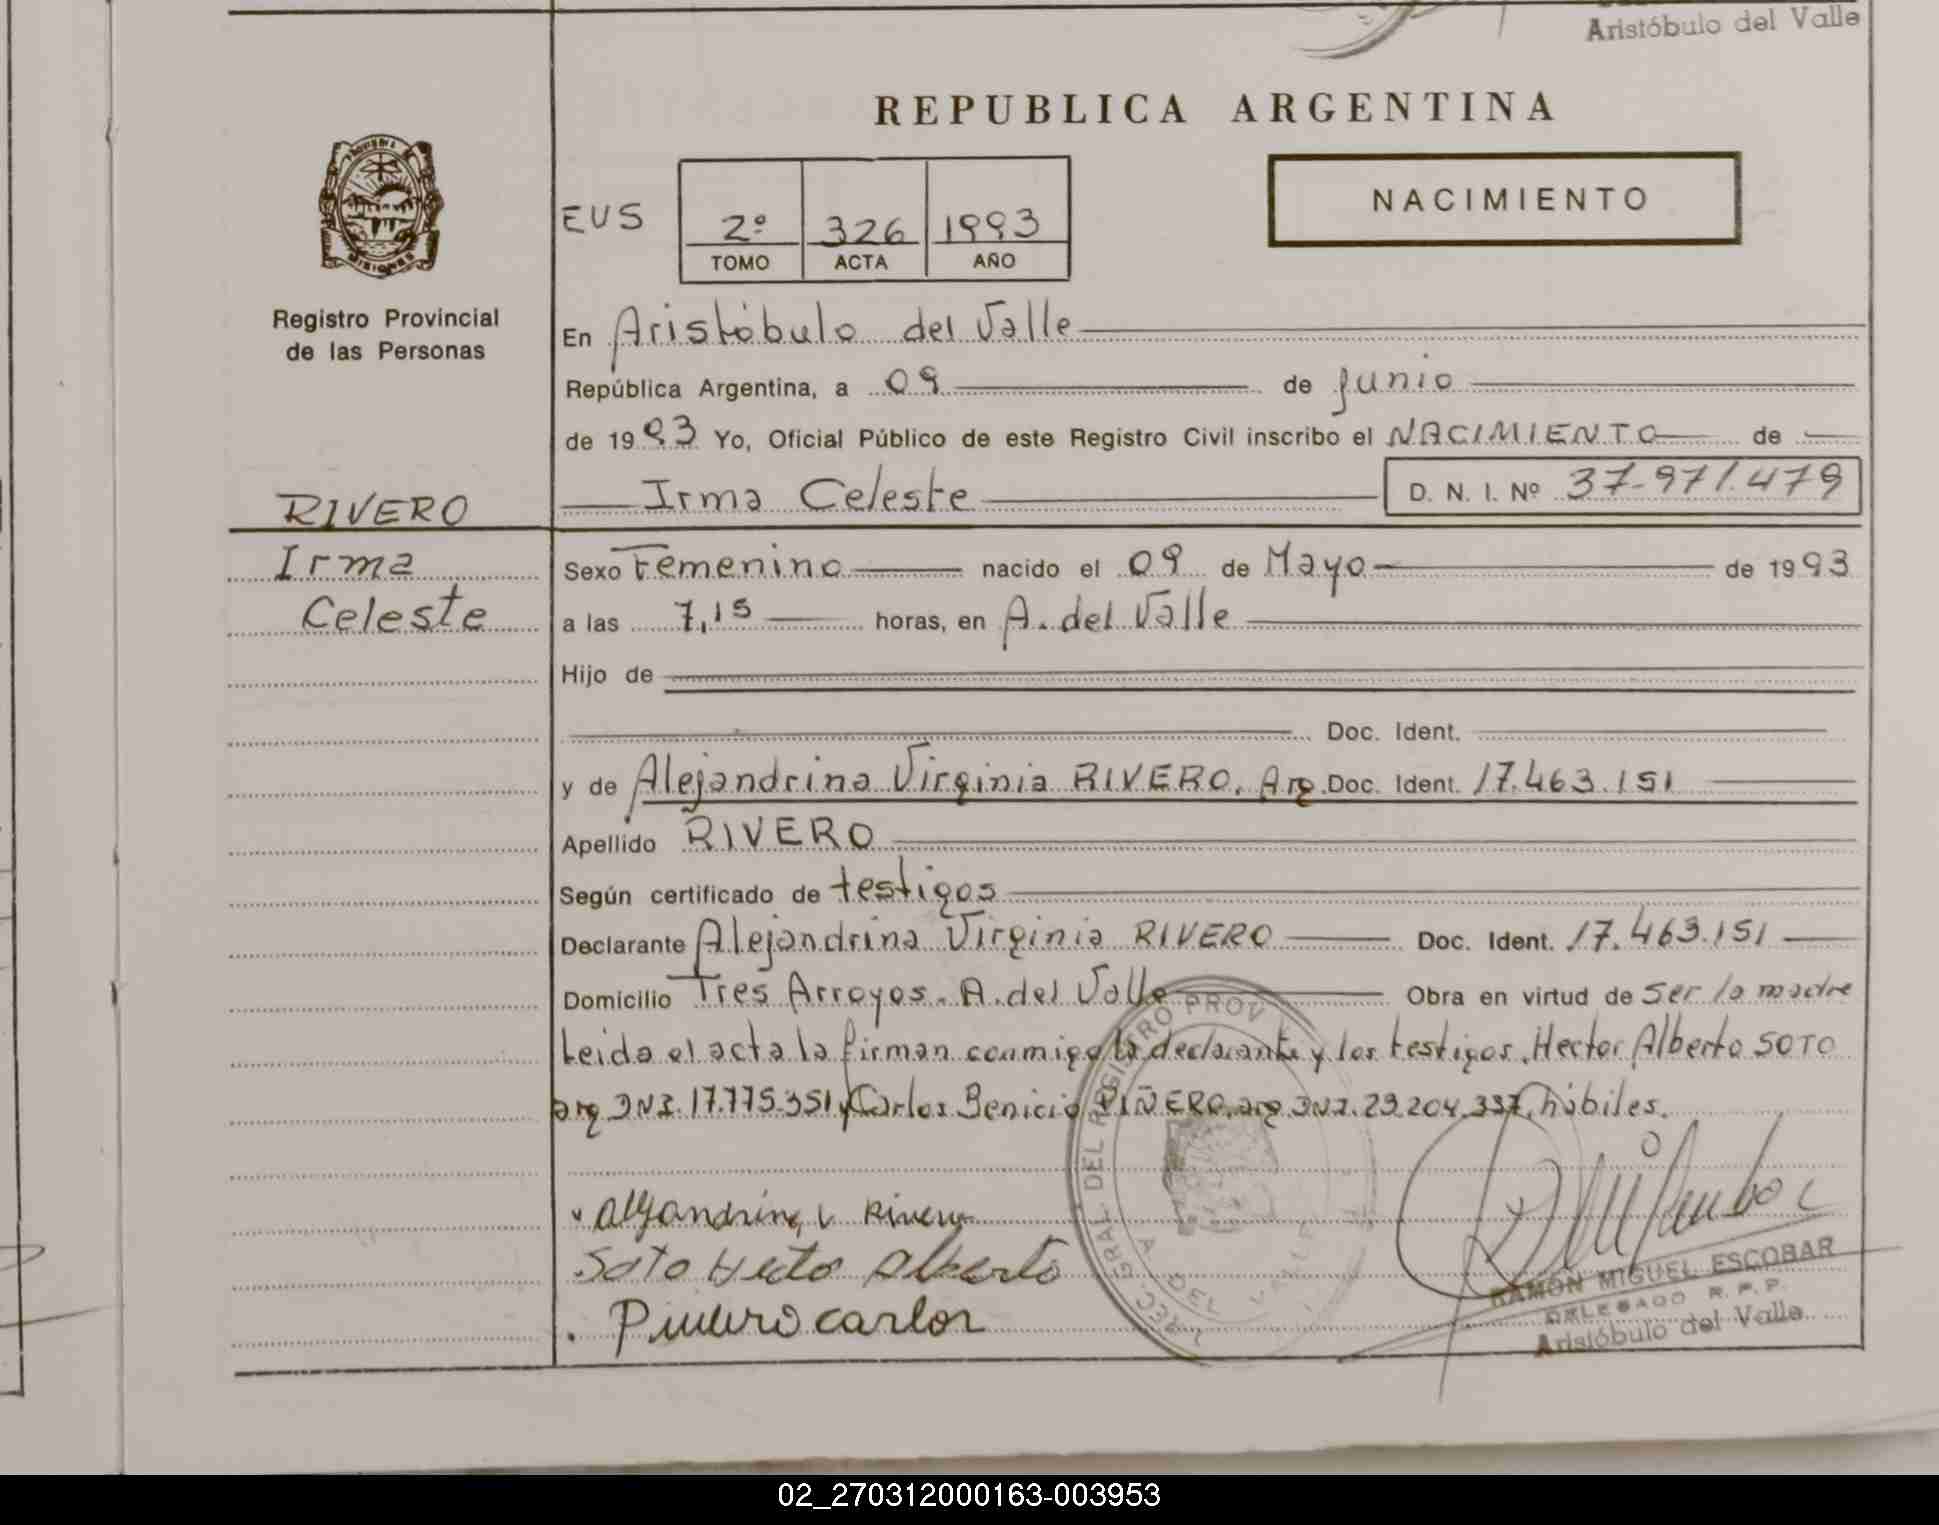 Aristóbulo del Valle
REPUBLICA ARGENTINA
PROVINCIA DE
MISIONES
EUS
2º 326 1993
TOMO ACTA AÑO
NACIMIENTO
Registro Provincial
de las Personas
En Aristóbulo del Valle
República Argentina, a 09 de Junio
de 1993 Yo, Oficial Público de este Registro Civil inscribo el NACIMIENTO de
Irma Celeste D. N. I. Nº 37.971.479
RIVERO
Irma
Celeste
Sexo Femenino nacido el 09 de Mayo de 1993
a las 7,15 horas, en A. del Valle
Hijo de
Doc. Ident.
y de Alejandrina Virginia RIVERO. Arg. Doc. Ident. 17.463.151
Apellido RIVERO
Según certificado de testigos
Declarante Alejandrina Virginia RIVERO Doc. Ident. 17.463.151
Domicilio Tres Arroyos. A. del Valle Obra en virtud de ser la madre
Leida el acta la firman conmigo la declarante y los testigos, Hector Alberto SOTO
arg DNI. 17.775.351 y Carlos Benicio PIÑERO, arg DNI. 23.204.337, hábiles.
Alejandrina V Rivero
Soto Hecto Alberto
Piñero carlos
DEL REGISTRO PROV
A. DEL VALLE
RAMÓN MIGUEL ESCOBAR
DELEGADO R. P. P.
Aristóbulo del Valle
02_270312000163-003953